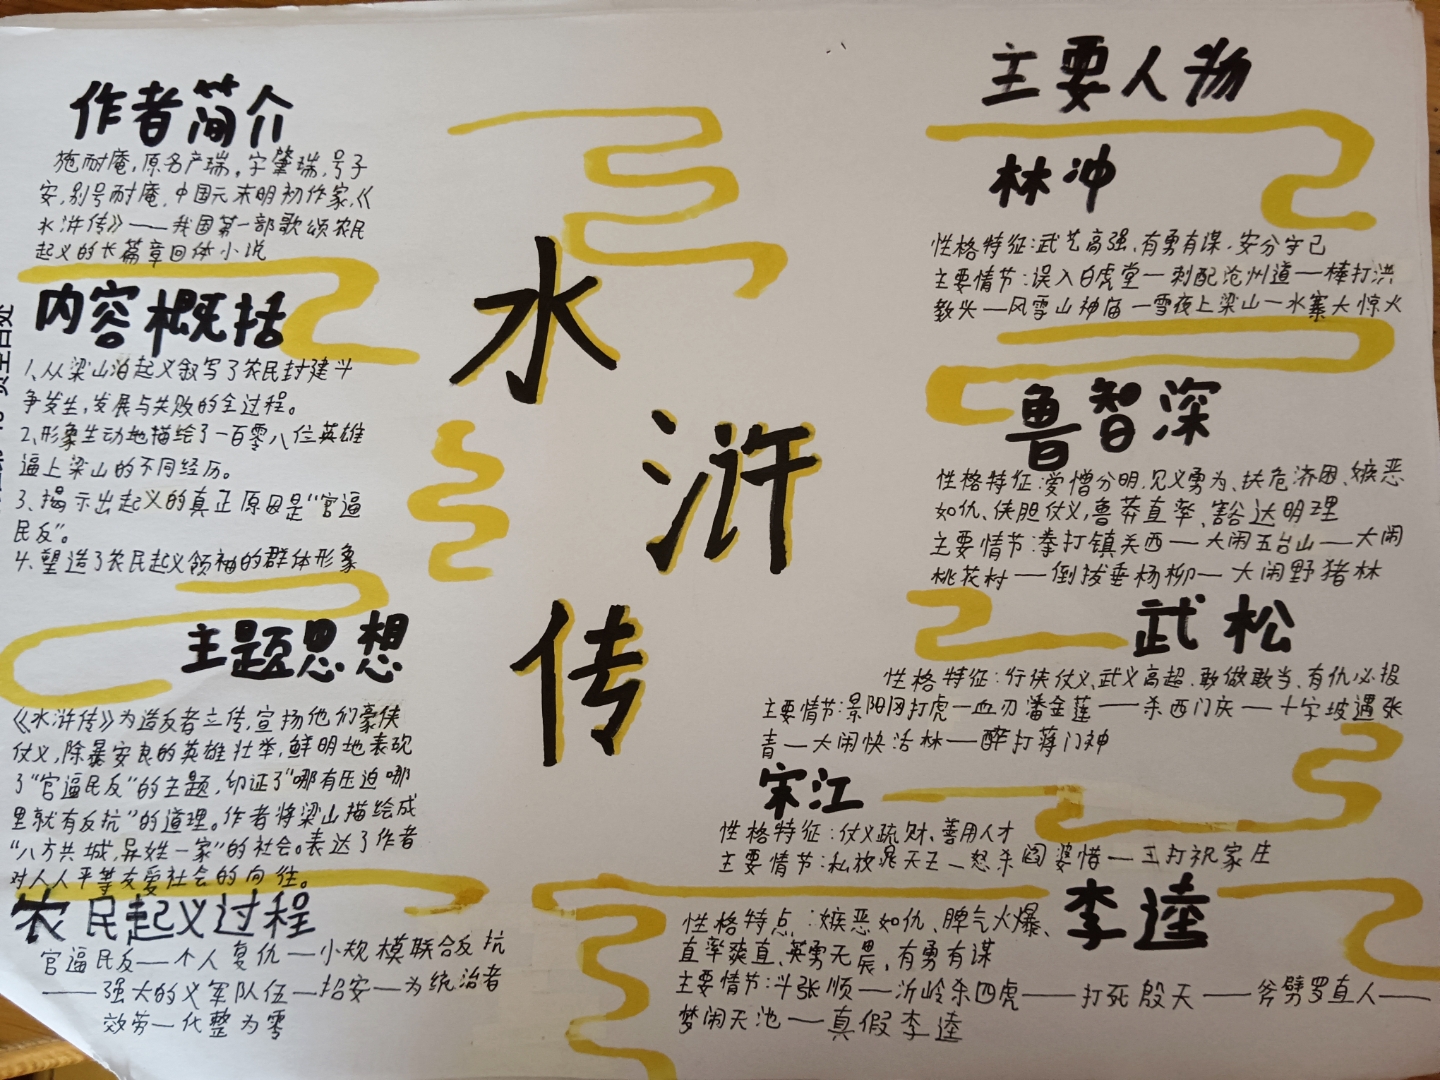 作者简介
施耐庵,原名产瑞,字肇瑞,号子
安,别号耐庵,中国元末明初作家,《
水浒传》——我国第一部歌颂农民
起义的长篇章回体小说
内容概括
1、从梁山泊起义叙写了农民封建斗
争发生,发展与失败的全过程。
2、形象生动地描绘了一百零八位英雄
逼上梁山的不同经历。
3、揭示出起义的真正原因是“官逼
民反”。
4、塑造了农民起义领袖的群体形象
主题思想
《水浒传》为造反者立传,宣扬他们豪侠
仗义,除暴安良的英雄壮举,鲜明地表砍
了“官逼民反”的主题,印证了“哪有压迫哪
里就有反抗”的道理。作者将梁山描绘成
“八方共城,异姓一家”的社会。表达了作者
对人人平等友爱社会的向往。
农民起义过程
官逼民反—个人复仇—小规模联合反抗
——强大的义军队伍—招安—为统治者
效劳—代整为零
水
浒
传
主要人物
林冲
性格特征:武艺高强、有勇有谋、安分字已
主要情节:误入白虎堂—刺配沧州道—棒打洪
教头—风雪山神庙—雪夜上梁山—水寨大惊火
鲁智深
性格特征:爱憎分明、见义勇为、扶危济困、嫉恶
如仇、侠胆仗义,鲁莽直率、豁达明理
主要情节:拳打镇关西—大闹五台山—大闹
桃花村—倒拔垂杨柳—大闹野猪林
武松
性格特征:行侠仗义、武义高超、敢做敢当、有仇必报
主要情节:景阳冈打虎—血刃潘金莲—杀西门庆—十字坡遇张
青—大闹快活林—醉打蒋门神
宋江
性格特征:仗义疏财、善用人才
主要情节:私放晁天王—怒杀阎婆惜—三打祝家庄
李逵
性格特点:嫉恶如仇、脾气火爆、
直率爽直、英勇无畏、有勇有谋
主要情节:斗张顺—沂岭杀四虎—打死殷天—斧劈罗真人—
梦闹天池—真假李逵